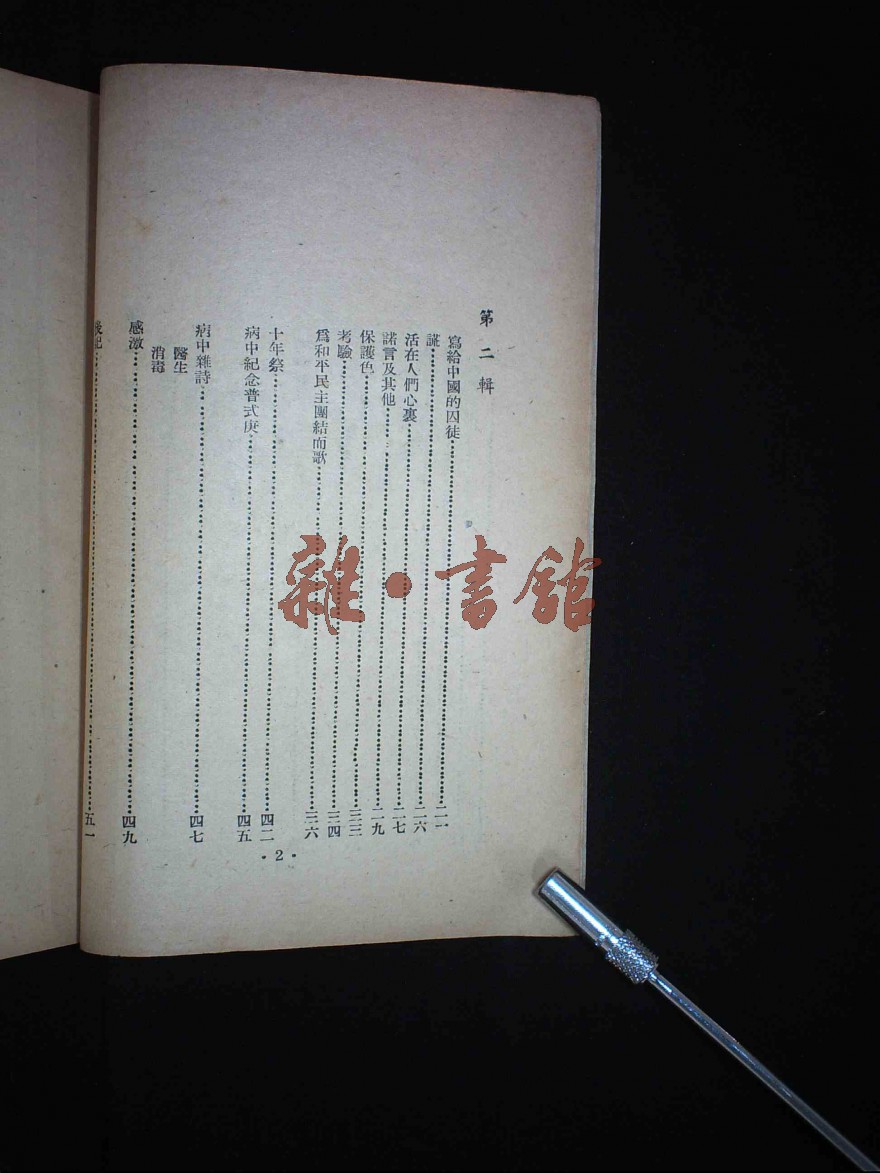 第二輯
寫給中國的囚徒……二一
謊……二六
活在人們心裏……二七
諾言及其他……二九
保護色……三三
考驗……三四
爲和平民主團結而歌……三六
十年祭……四二
病中紀念普式庚……四五
病中雜詩……四七
醫生
消毒
感激……四九
後記……五一
·2·
雜·書館